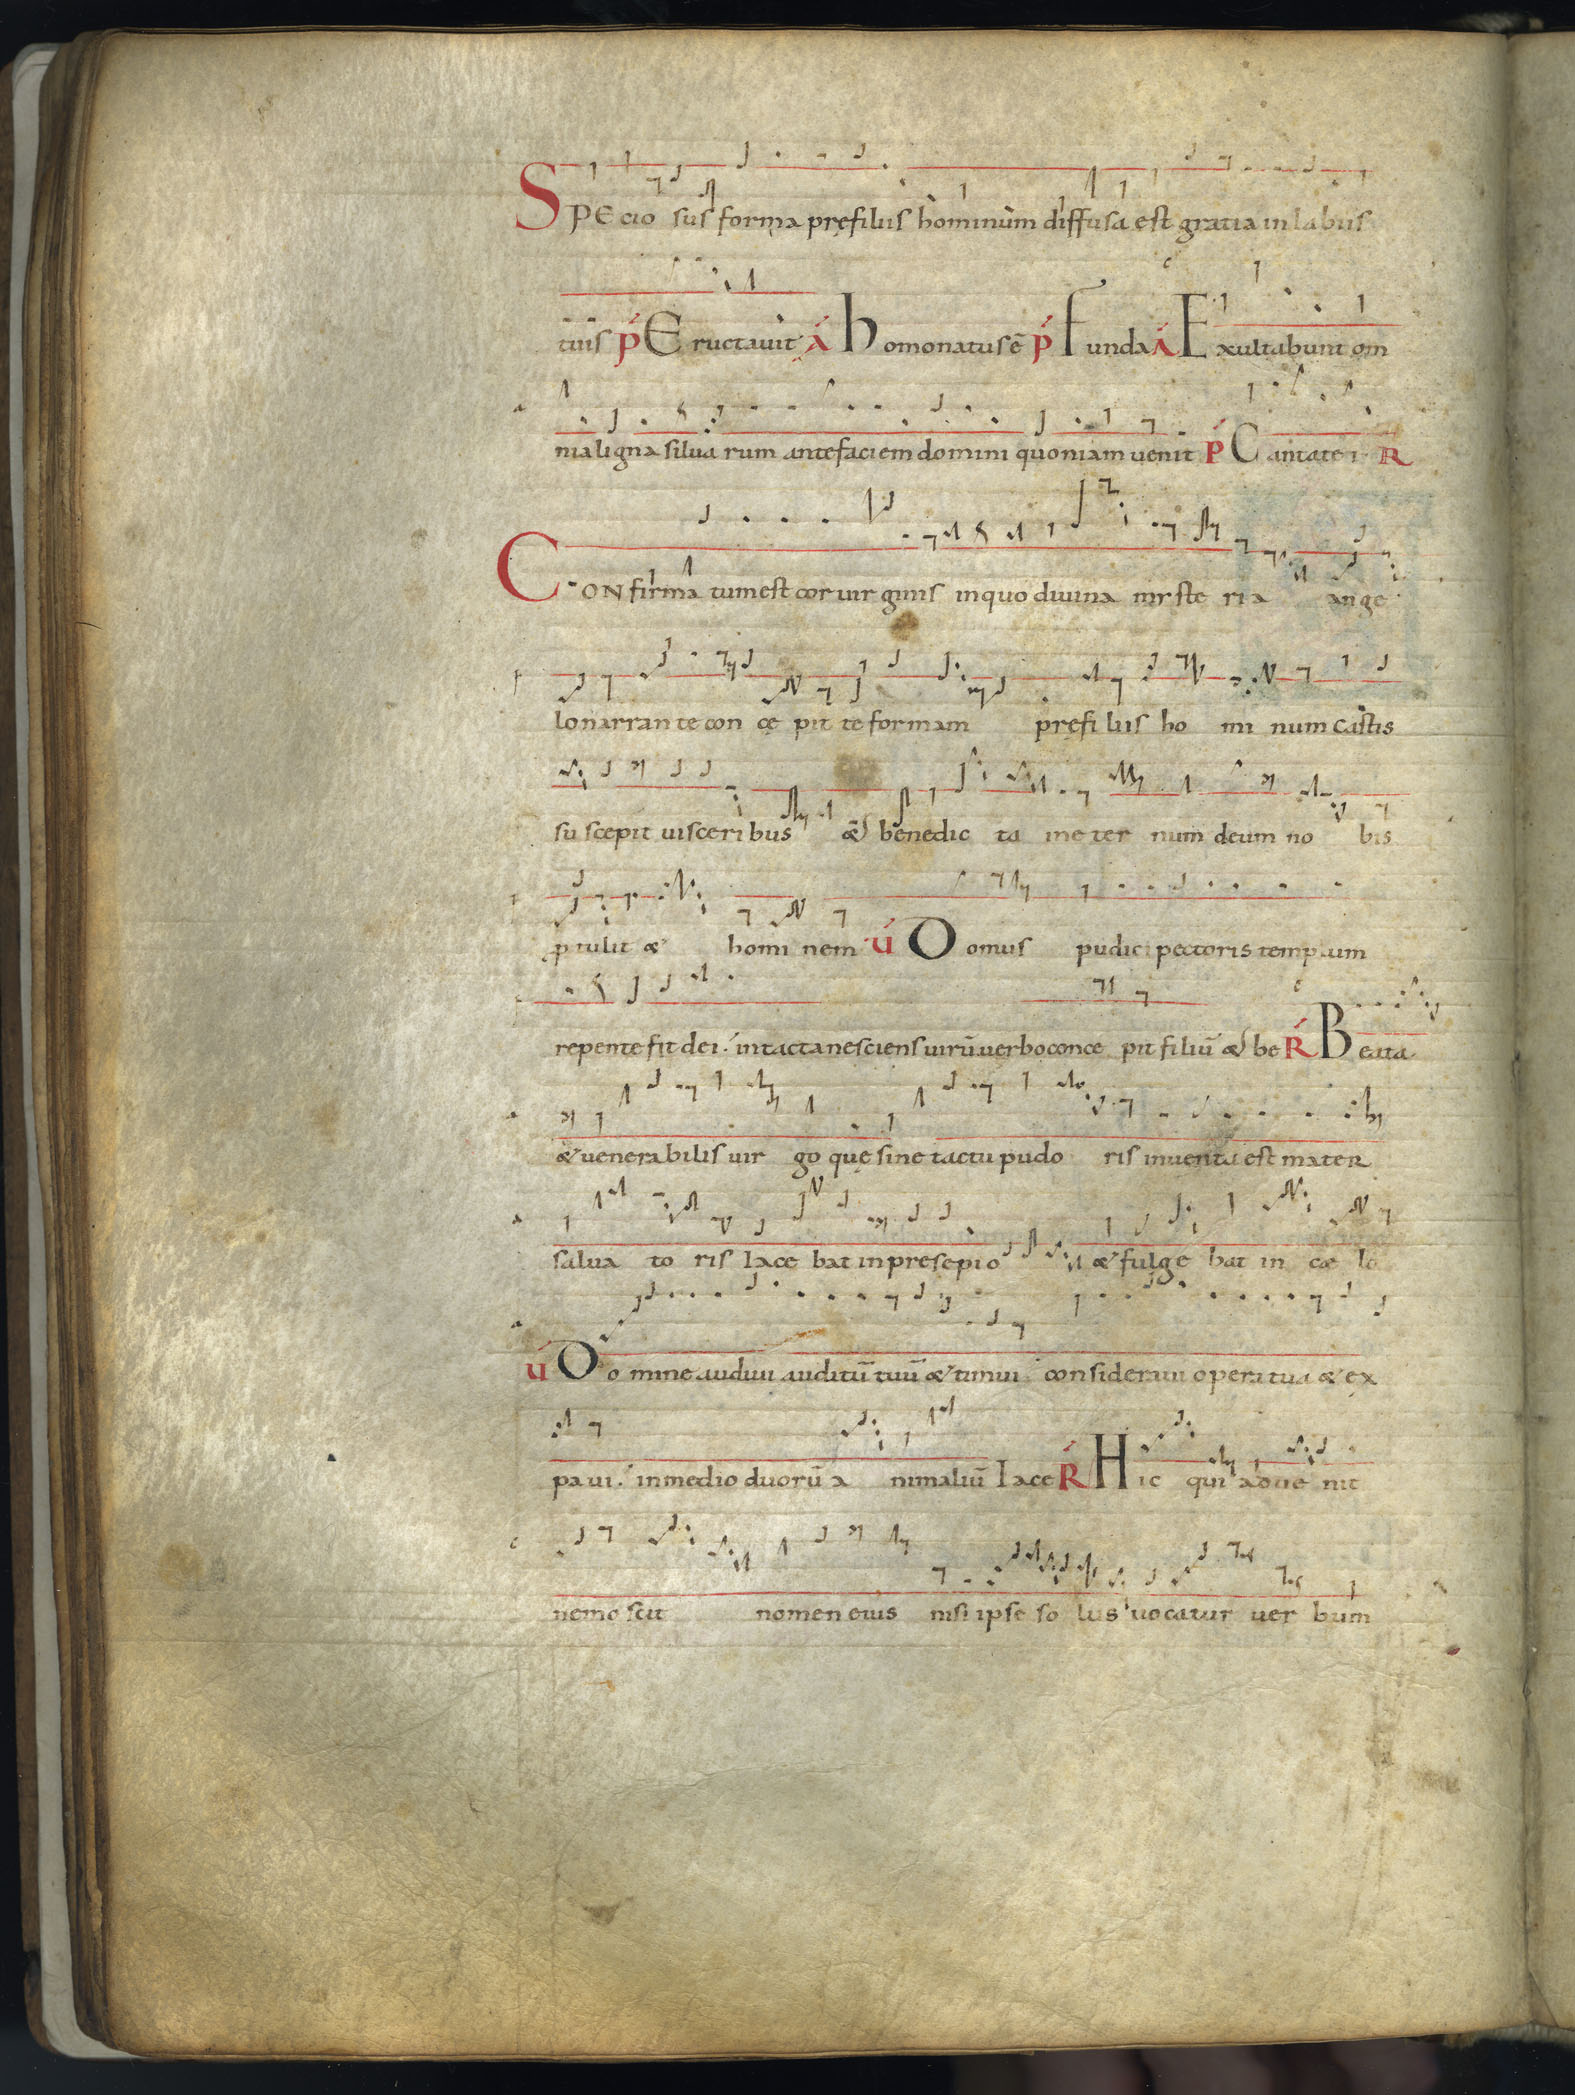 SPEciosus forma pręfiliis hominum diffusa est gratia in labiis
tuis p Eructauit a homo natus ē p Funda a Exultabunt om
nia ligna siluarum ante faciem domini quoniam uenit p Cantate i R
CONfirmatum est cor uirginis in quo diuina mysteria ange
lo narrante concępit te formam pręfiliis hominum castis
suscepit uisceribus & benedicta in eternum deum nobis
ptulit & hominem ú Domus pudici pectoris templum
repente fit dei. intacta nesciens uirū uerbo concepit filiū & be R Beata
& uenerabilis uirgo quę sine tactu pudoris inuenta est mater
saluatoris Iacebat in presepio & fulgebat in cælo
ú Domine audiui auditū tuū & timui consideraui opera tua & ex
paui. in medio duorū animaliū Iace R Hic qui aduenit
nemo scit nomen eius nisi ipse solus uocatur uerbum